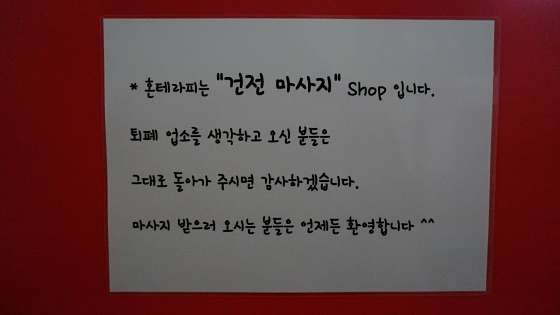 * 혼테라피는 "건전 마사지" Shop 입니다.
퇴폐 업소를 생각하고 오신 분들은
그대로 돌아가 주시면 감사하겠습니다.
마사지 받으러 오시는 분들은 언제든 환영합니다 ^^